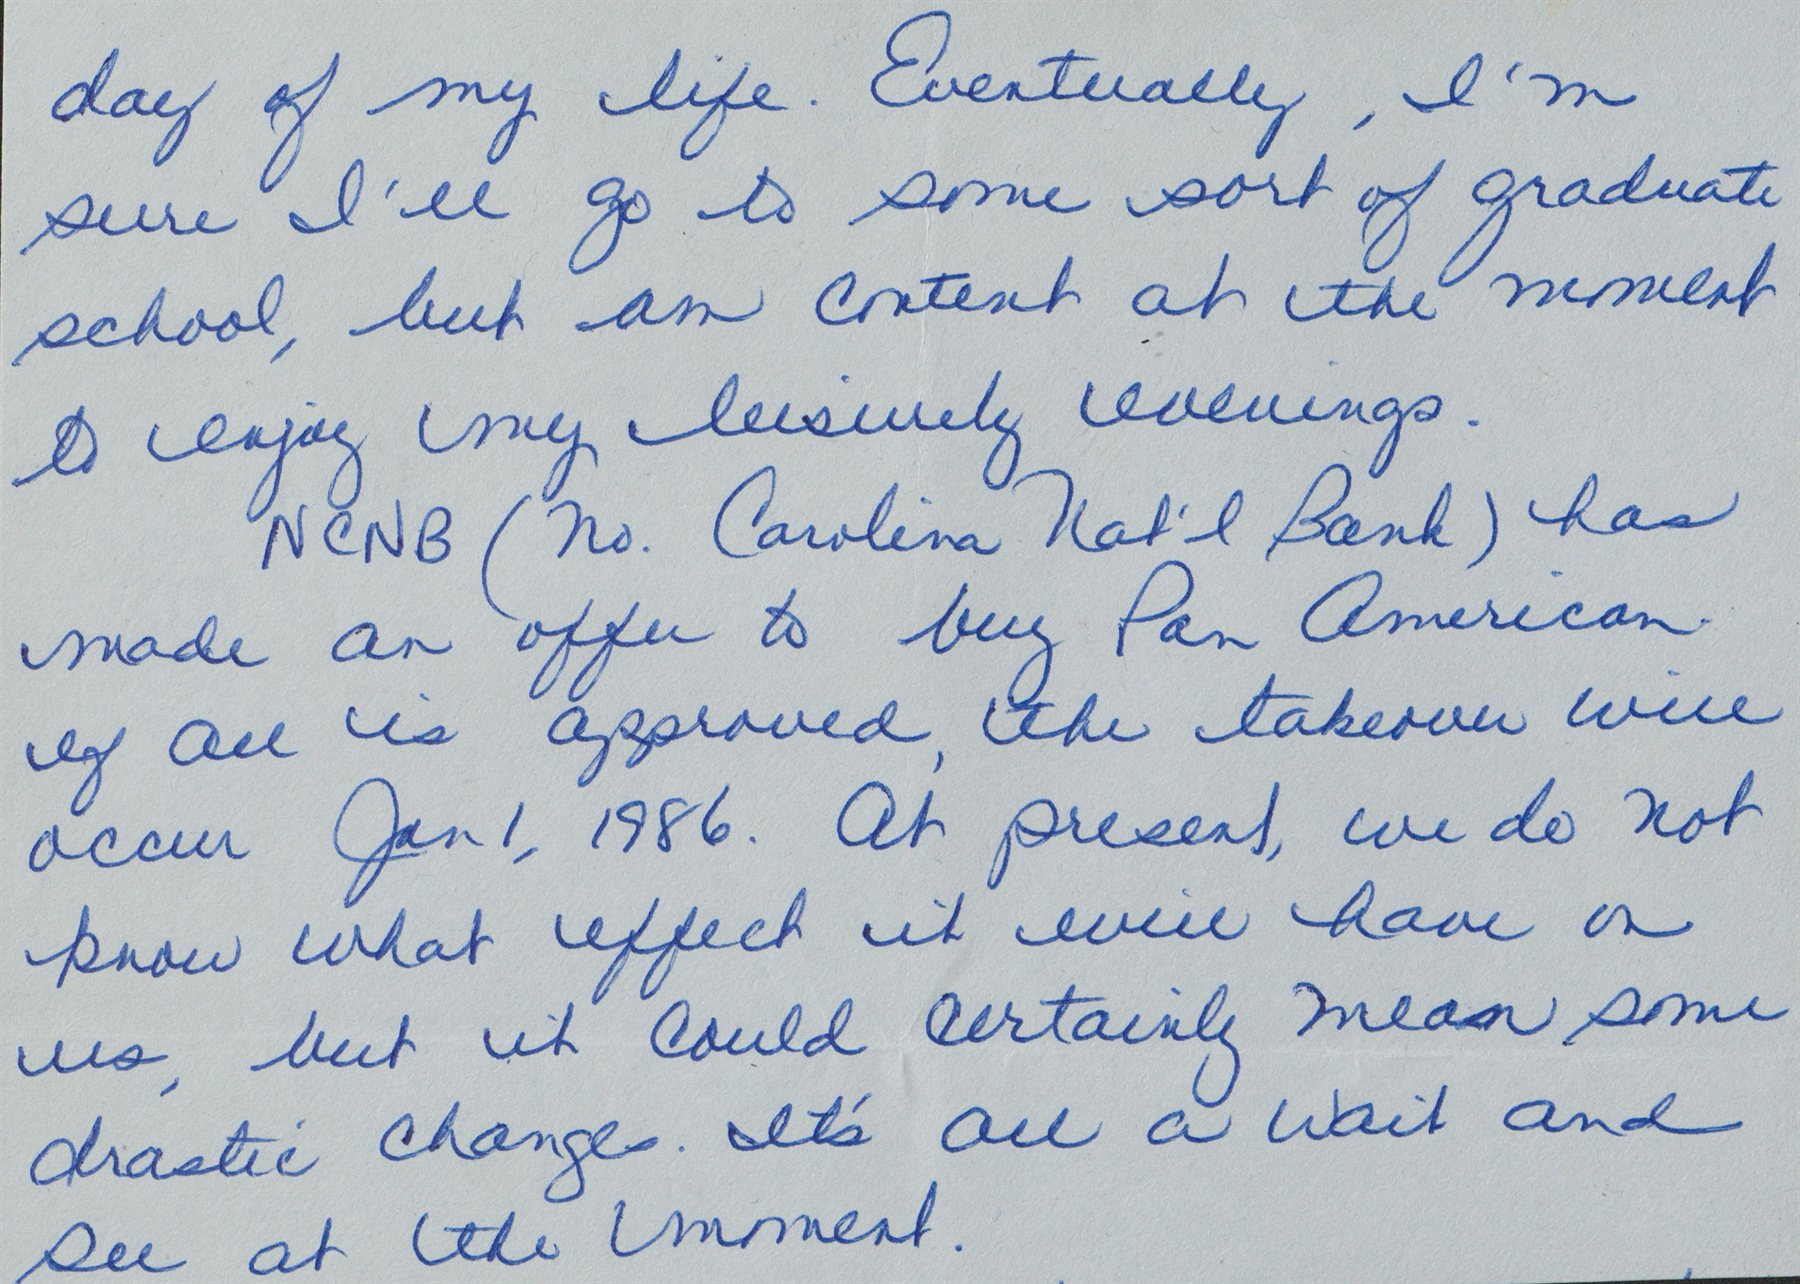 day of my life. Eventually, I'm
sure I'll go to some sort of graduate
school, but am content at the moment
to enjoy my leisurely evenings.
NCNB (No. Carolina Nat'l Bank) has
made an offer to buy Pan American.
If all is approved, the takeover will
occur Jan 1, 1986. At present, we do not
know what effect it will have on
us, but it could certainly mean some
drastic changes. It's all a wait and
see at the moment.